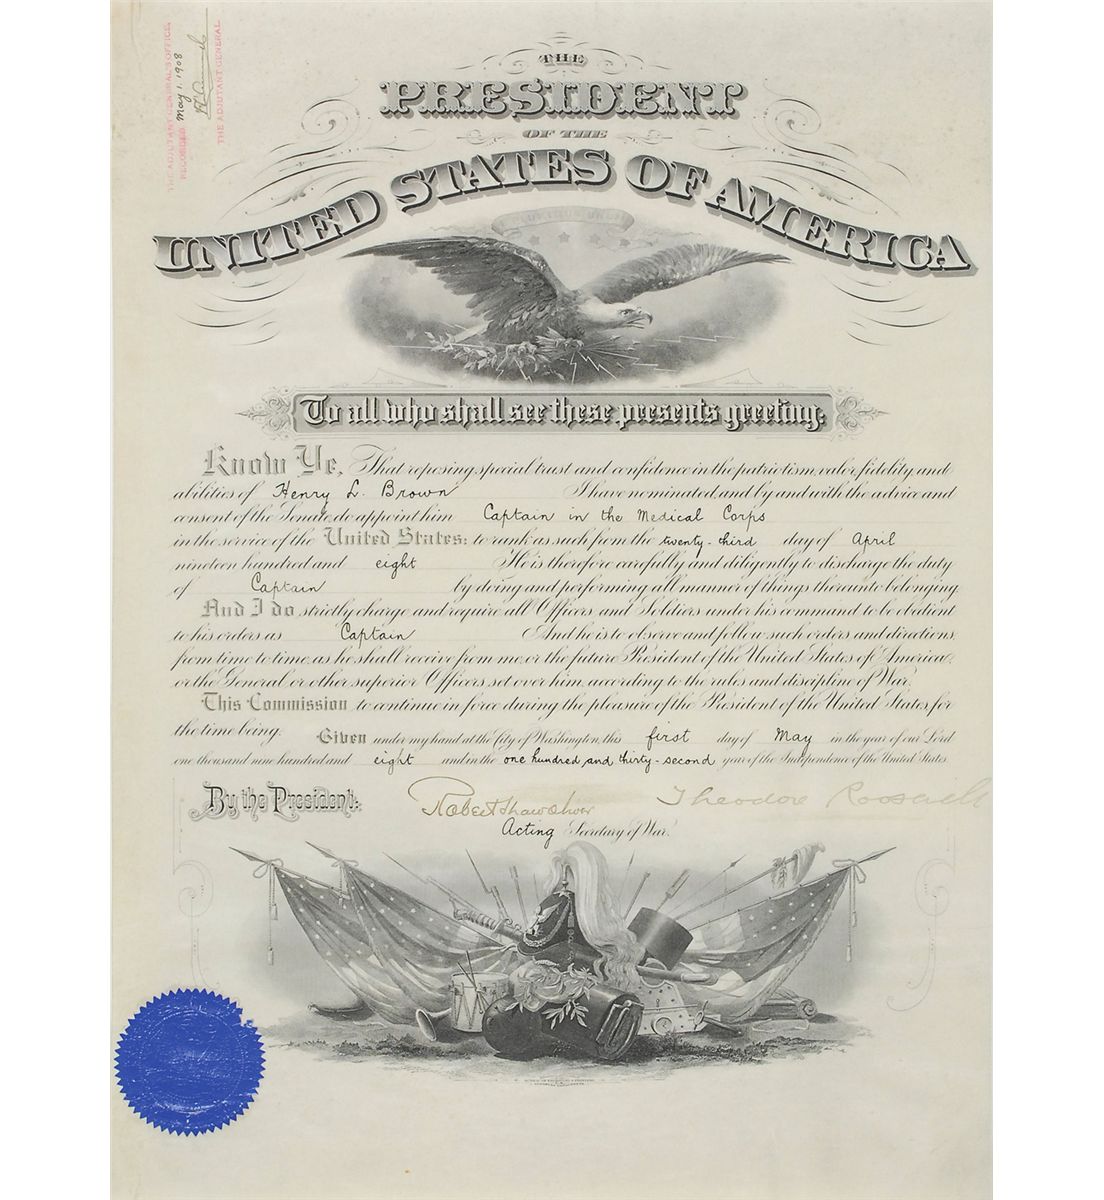 THE ADJUTANT GENERAL'S OFFICE,
RECORDED May 1. 1908
THE ADJUTANT GENERAL.
THE
PRESIDENT
OF THE
UNITED STATES OF AMERICA
To all who shall see these presents greeting:
Know Ye, That reposing special trust and confidence in the patriotism, valor, fidelity and
abilities of Henry L. Brown I have nominated, and by and with the advice and
consent of the Senate, do appoint him Captain in the Medical Corps
in the service of the United States: to rank as such from the twenty-third day of April
nineteen hundred and eight He is therefore carefully and diligently to discharge the duty
of Captain by doing and performing all manner of things thereunto belonging.
And I do strictly charge and require all Officers and Soldiers under his command to be obedient
to his orders as Captain And he is to observe and follow such orders and directions,
from time to time, as he shall receive from me, or the future President of the United States of America,
or the General or other superior Officers set over him, according to the rules and discipline of War.
This Commission to continue in force during the pleasure of the President of the United States, for
the time being. Given under my hand at the City of Washington, this first day of May in the year of our Lord
one thousand nine hundred and eight and in the one hundred and thirty-second year of the Independence of the United States.
By the President: Robert Shaw Oliver Theodore Roosevelt
Acting Secretary of War.